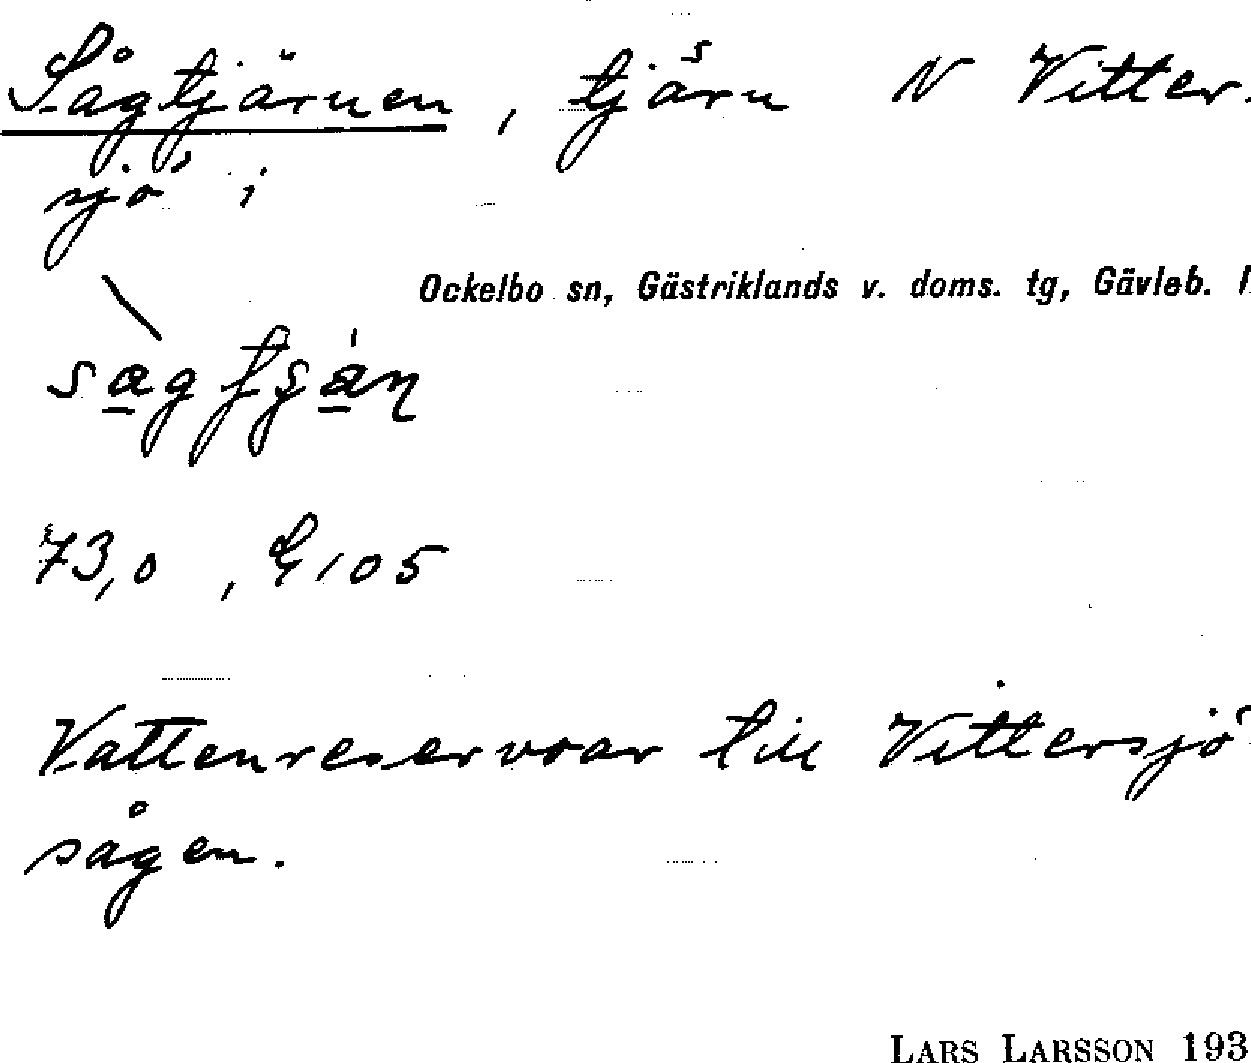 Sågtjärnen, tjärn N Vitter-
sjö i
Ockelbo sn, Gästriklands v. doms. tg, Gävleb. l
73,0, G 105
Vattenreservoar till Vittersjö-
sågen.
LARS LARSSON 193